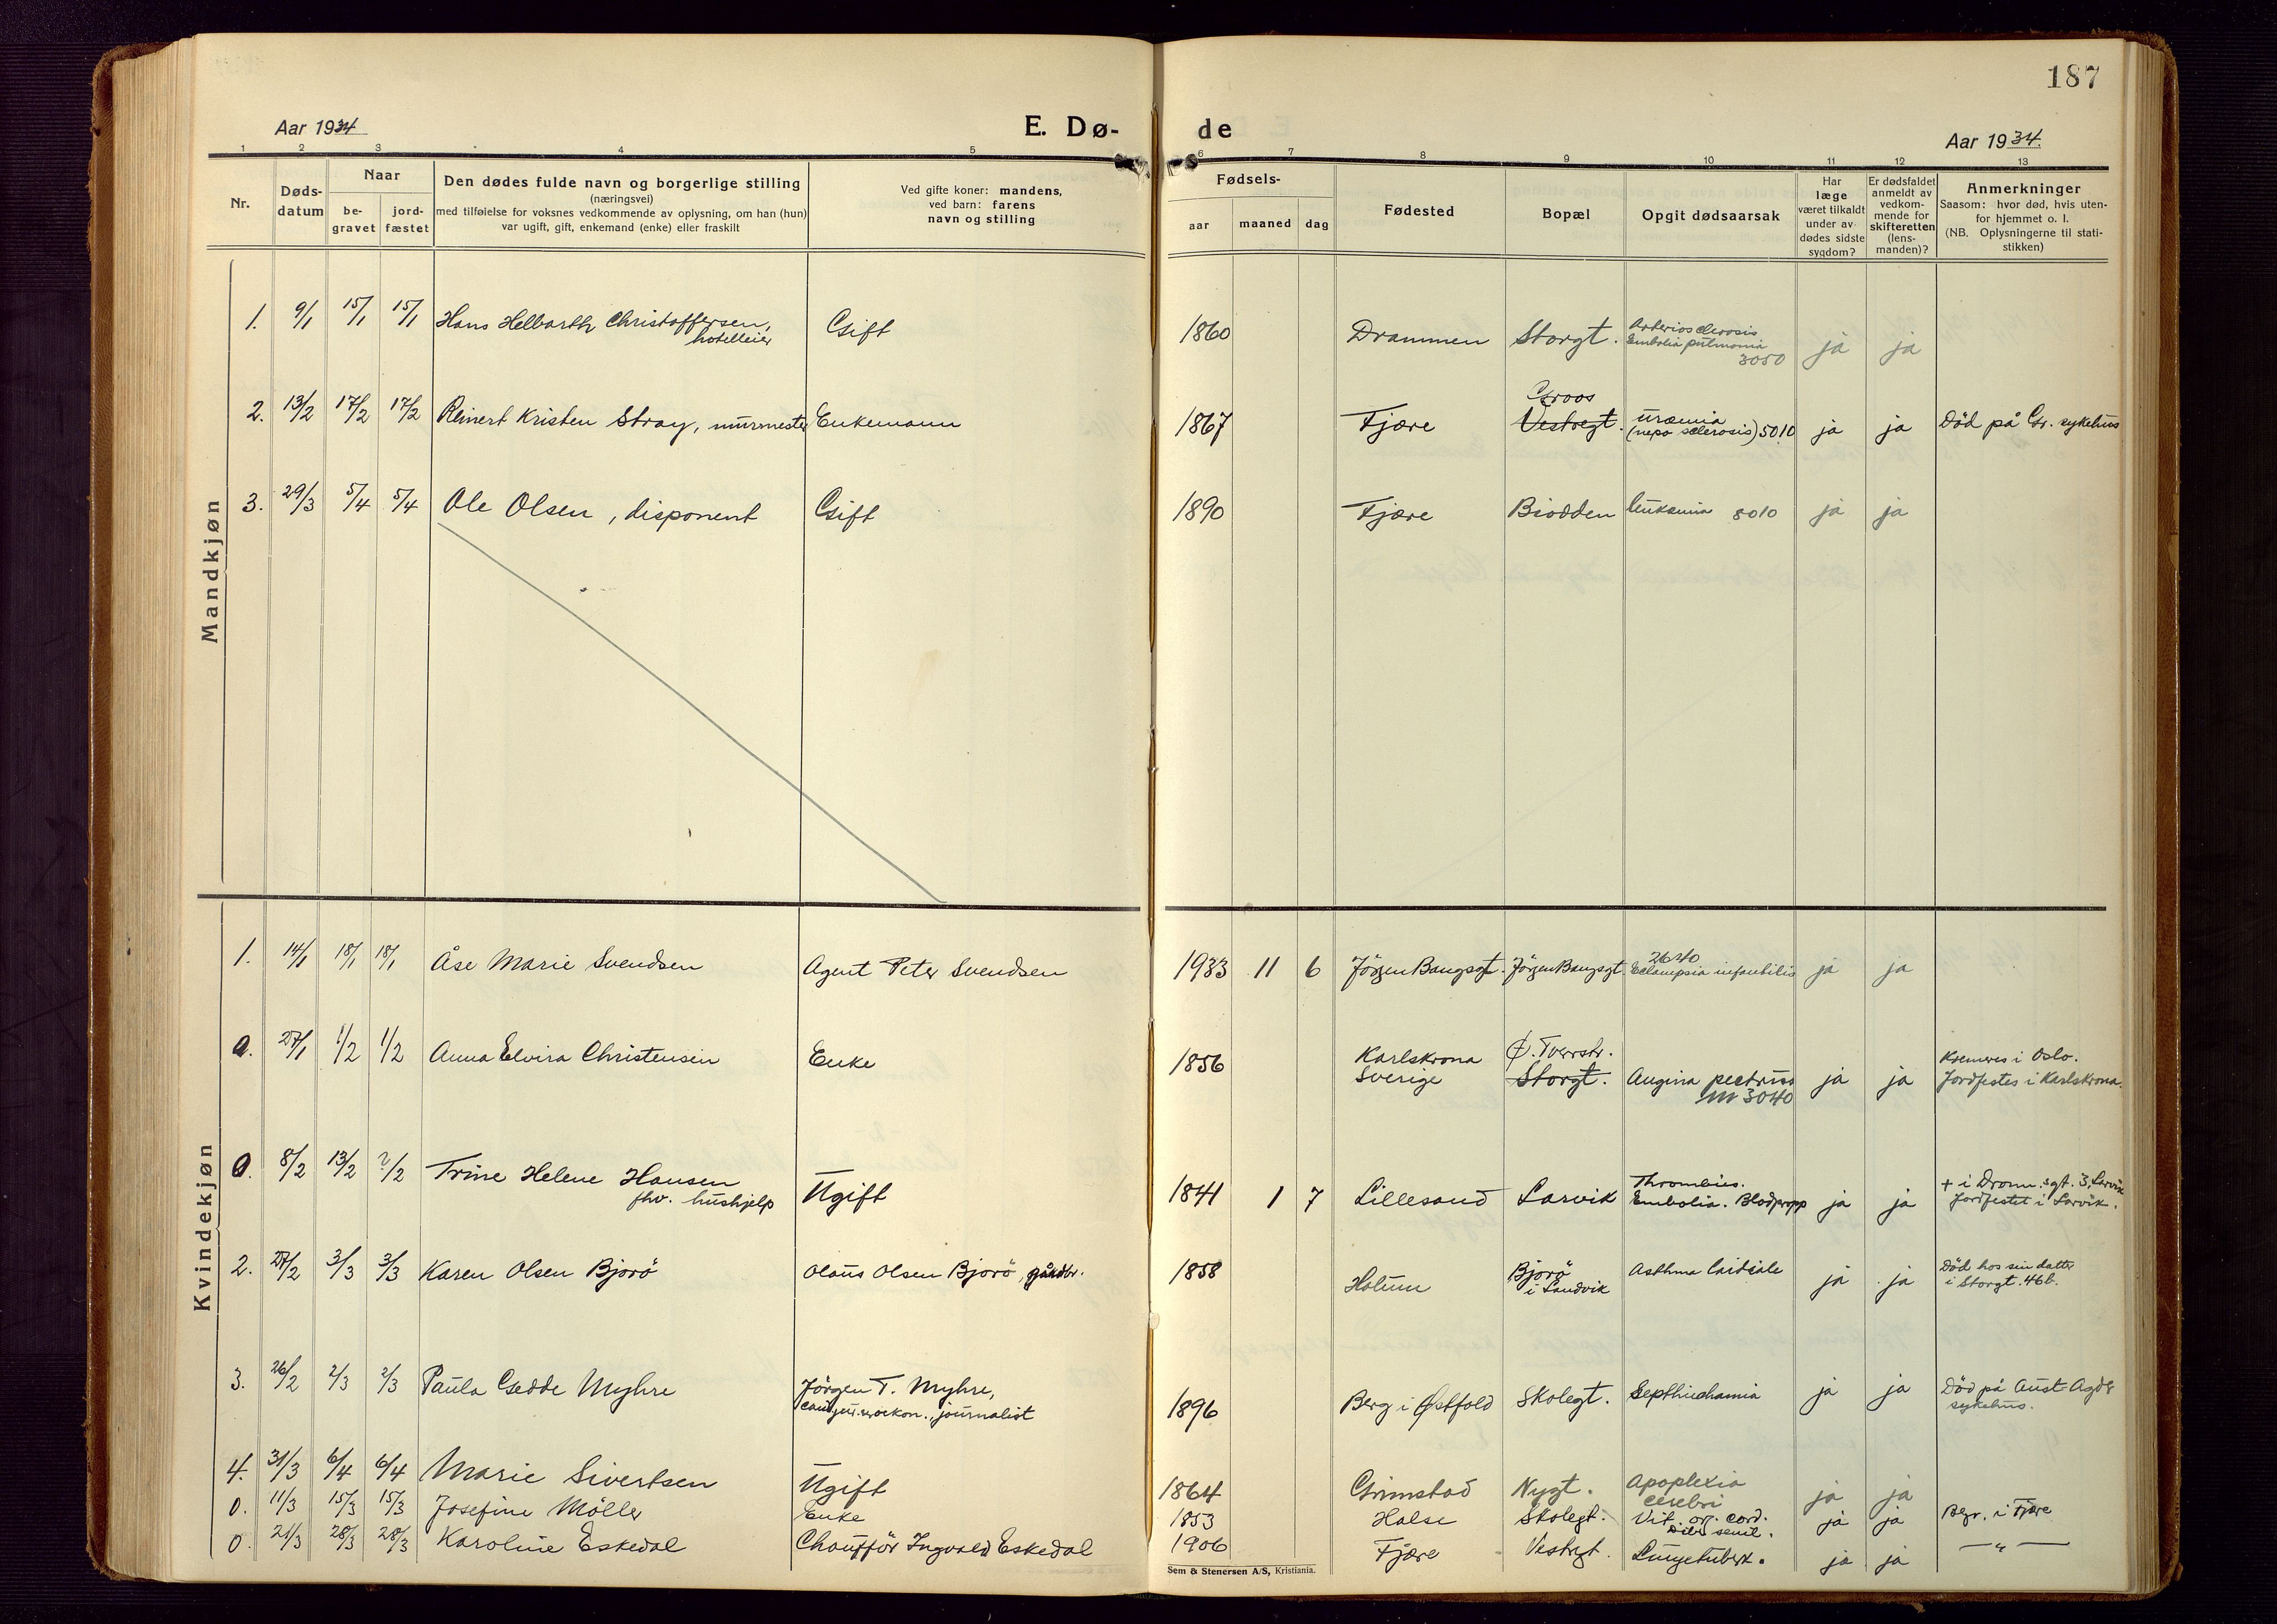 187
Aar 1934
E. Dø-
de
Aar 1934.
1 2 3 4 5 6 7 8 9 10 11 12 13
Nr.
Døds-
datum
Naar
be-
gravet
jord-
fæstet
Den dødes fulde navn og borgerlige stilling
(næringsvei)
med tilføielse for voksnes vedkommende av oplysning, om han (hun)
var ugift, gift, enkemand (enke) eller fraskilt
Ved gifte koner: mandens,
ved barn: farens
navn og stilling
Fødsels-
aar maaned dag
Fødested
Bopæl
Opgit dødsaarsak
Har
læge
været tilkaldt
under av-
dødes sidste
sygdom?
Er dødsfaldet
anmeldt av
vedkom-
mende for
skifteretten
(lens-
manden)?
Anmerkninger
Saasom: hvor død, hvis uten-
for hjemmet o. l.
(NB. Oplysningerne til stati-
stikken)
Mandkjøn
1. 9/1 15/1 15/1 Hans Helbarth Christoffersen,
hotelleier
Gift 1860 Drammen Storgt.
Arteriosclerosis
Embolia pulmonia
3050
ja ja
2. 13/2 17/2 17/2 Reinert Kristen Stray, murmester Enkemann 1867 Fjære
Groos
Vestregt.
uræmia
sclerosis) 5010
ja ja Död på Gr. sykehus
3. 29/3 5/4 5/4 Ole Olsen, disponent Gift 1890 Fjære Biodden leukæmia 8010 ja ja
Kvindekjøn
1. 14/1 18/1 18/1 Åse Marie Svendsen Agent Peter Svendsen 1933 11 6 Jörgen Bangsgt. Jörgen Bangsgt
2640
Eclampsia infantilis
ja ja
0. 27/1 1/2 1/2 Anna Elvira Christensen Enke 1856
Karlskrona
Sverige
Ø. Tverrstr.
Storgt.
Angina pectoris
3040
ja ja
Kremeres i Oslo.
Jordfestes i Karlskrona.
0. 8/2 13/2 ?/2 Trine Helene Hansen
fhv. hushjelp
Ugift 1841 1 7 Lillesand Larvik
Thrombus.
Embolia. Blodpropp
ja ja
+ i Dronn.sgt. 3, Larvik
Jordfestet i Larvik.
2. 27/2 3/3 3/3 Karen Olsen Bjorö Olaus Olsen Bjorö, gårdbr. 1858 Holum
Bjorö
i Landvik
Asthma cardiale
ja ja
Död hos sin datter
i Storgt. 46b.
3. 26/2 2/3 2/3 Paula Gedde Myhre
Jörgen T. Myhre,
journalist
1896 Berg i Østfold Skolegt. Septhichamia ja ja
Död på Aust-Agder
sykehus.
4. 31/3 6/4 6/4 Marie Sivertsen Ugift 1864 Grimstad Nygt.
Apoplexia
cerebri
ja ja
0. 11/3 15/3 15/3 Josefine Möller Enke 1853 Halse Skolegt.
Vit. org. cord.
senil.
ja ja Begr. i Fjære
0. 21/3 28/3 28/3 Karoline Eskedal Chaufför Ingvald Eskedal 1906 Fjære Vestregt. Lungetuberk. ja ja — " —
Sem & Stenersen A/S, Kristiania.